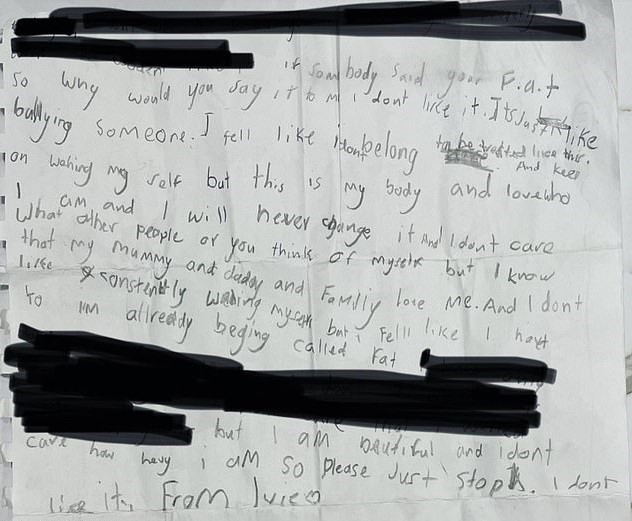 if somebody said your F.a.t
so why would you say it to m I dont like it. Its Just like
ballying someone. I fell like i dont belong to be treated like this.
And keep
on wahing my self but this is my body and love who
I am and I will never change it And I dont care
What other people or you think of myself but I know
that my mummy and daddy and Family love me. And I dont
like constently wahing myself but i fell like I haft
to im allready beging called Fat
but I am beautiful and i dont
care how hevy i am so please Just stop. I dont
like it. From